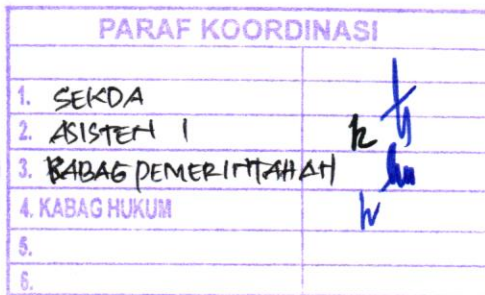 PARAF KOORDINASI
1. SEKDA
2. ASISTEN 1
3. KABAG PEMERINTAHAN
4. KABAG HUKUM
5.
6.